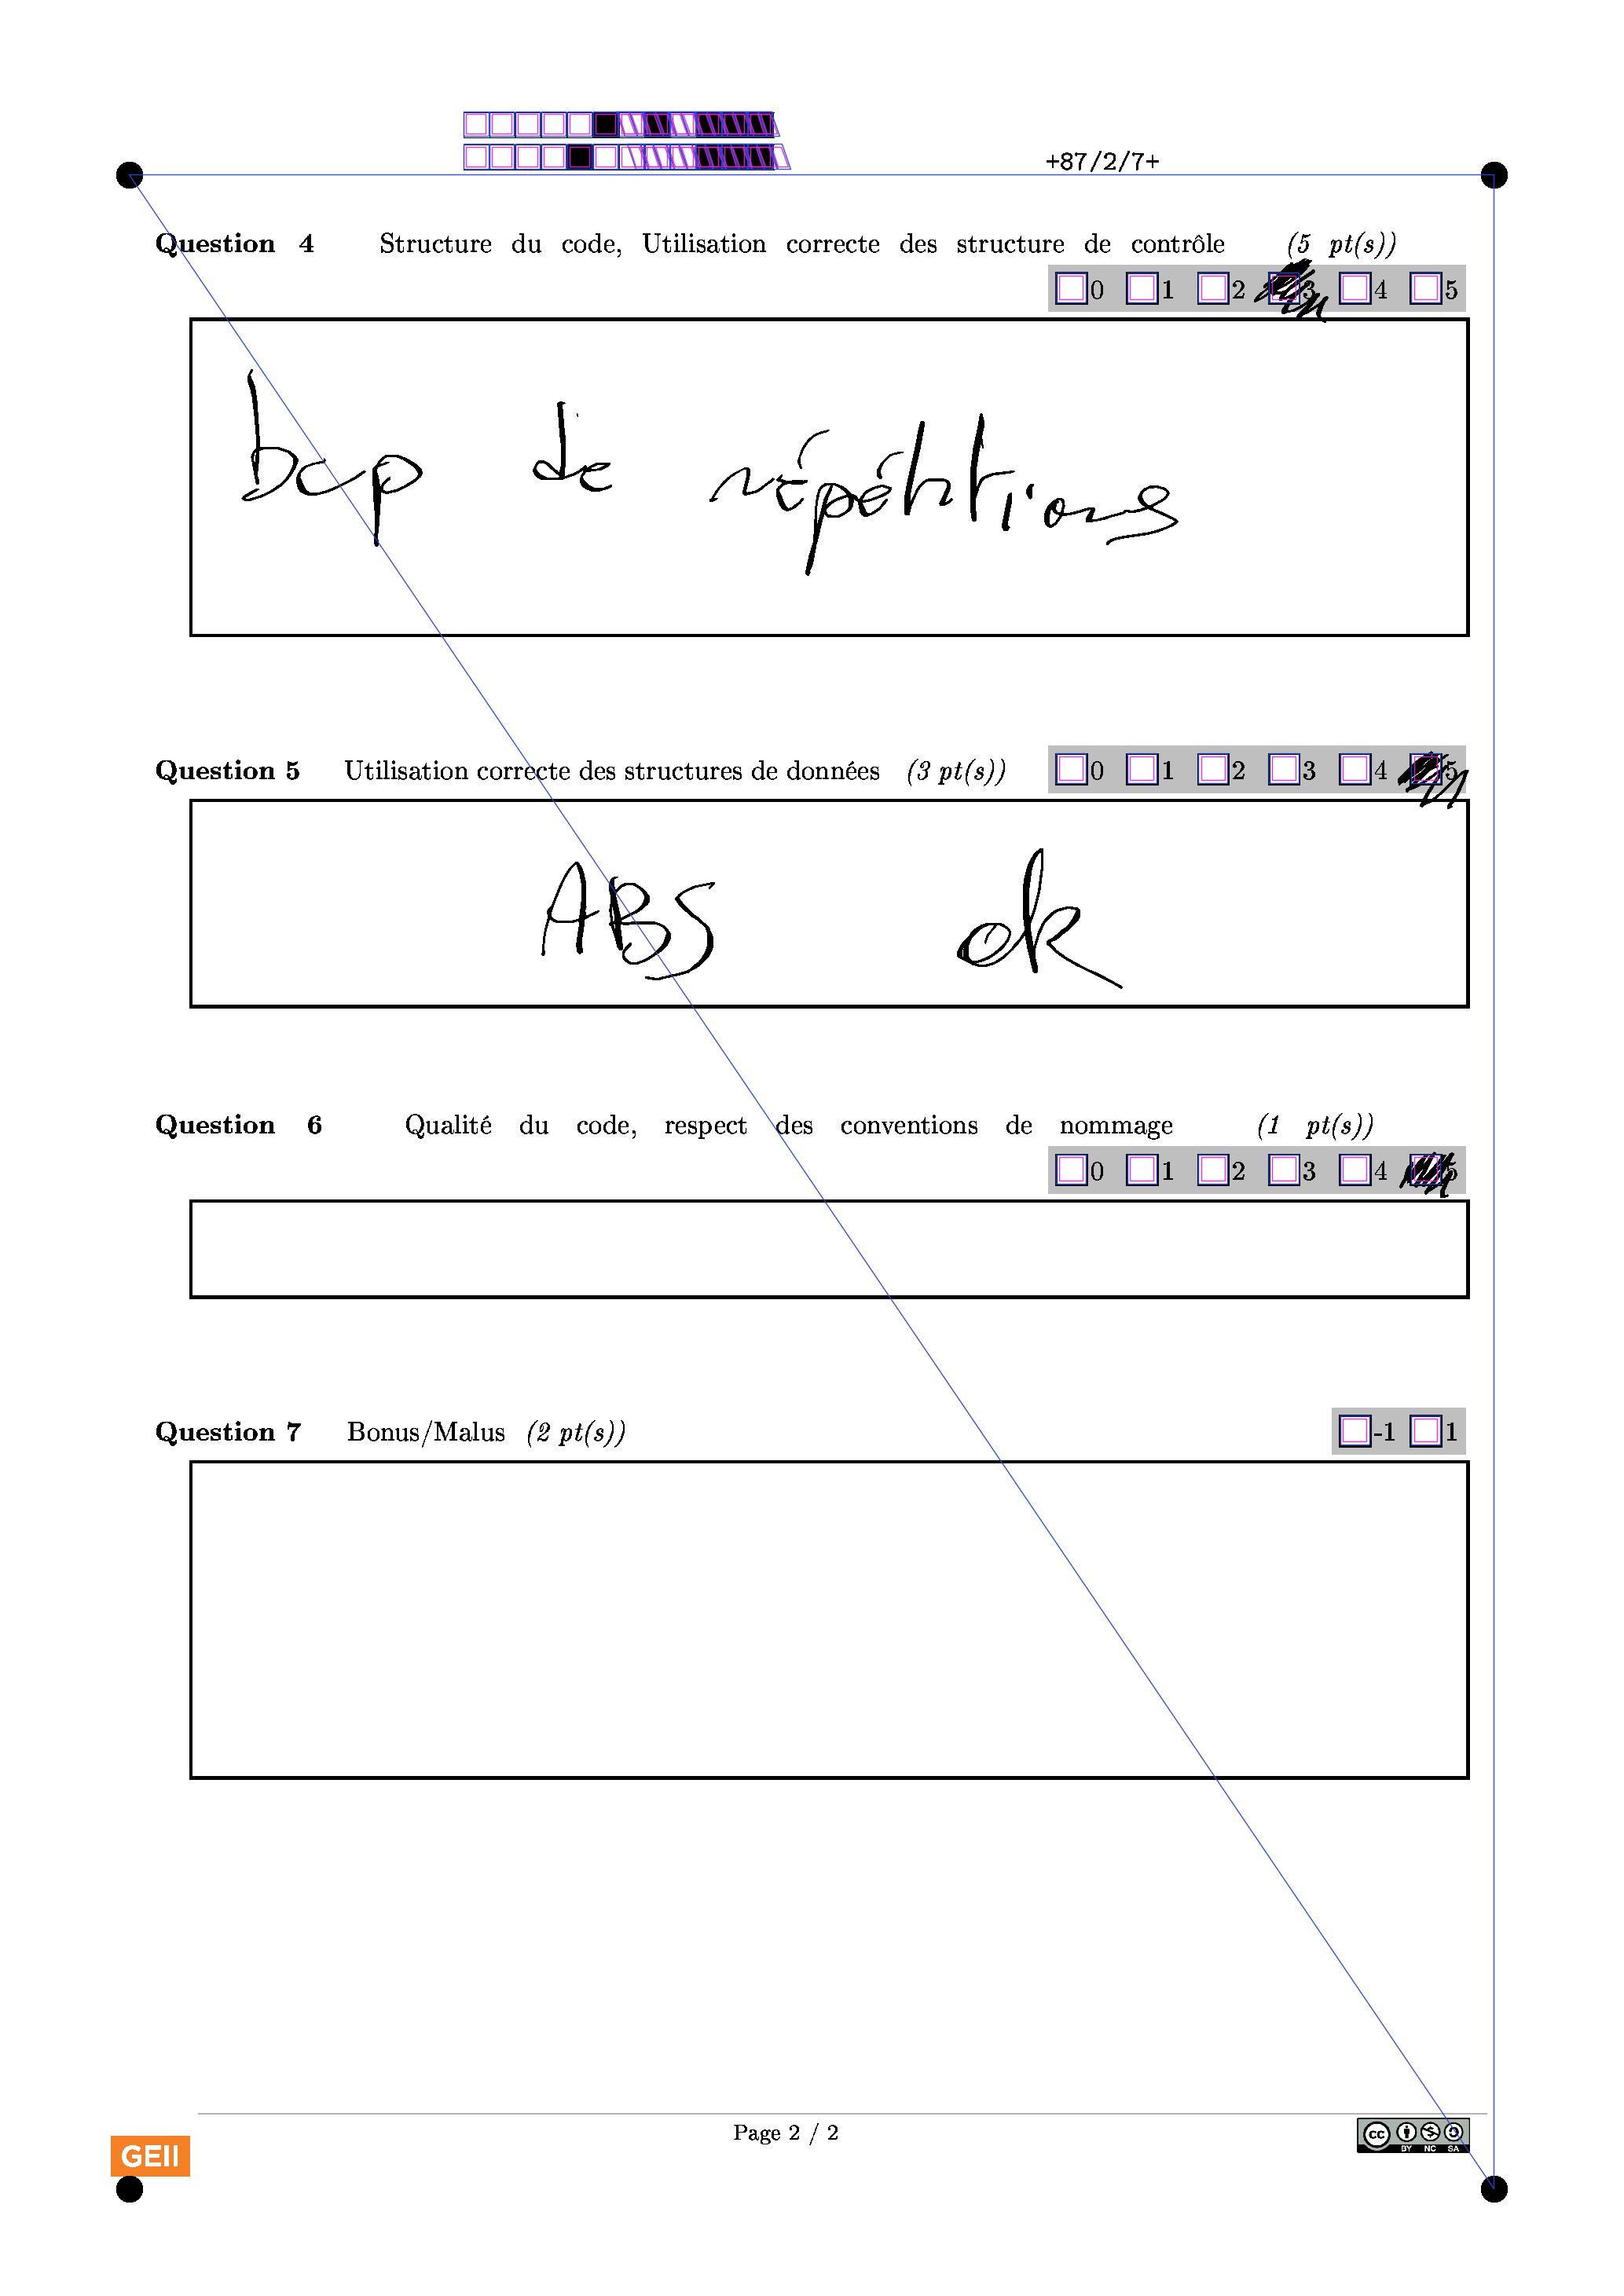 +87/2/7+
Question 4 Structure du code, Utilisation correcte des structure de contrôle (5 pt(s))
0 1 2 3 4 5
bcp de répétitions
Question 5 Utilisation correcte des structures de données (3 pt(s)) 0 1 2 3 4 5
ABS ok
Question 6 Qualité du code, respect des conventions de nommage (1 pt(s))
0 1 2 3 4 5
Question 7 Bonus/Malus (2 pt(s)) -1 1
Page 2 / 2
GEII
cc BY NC SA